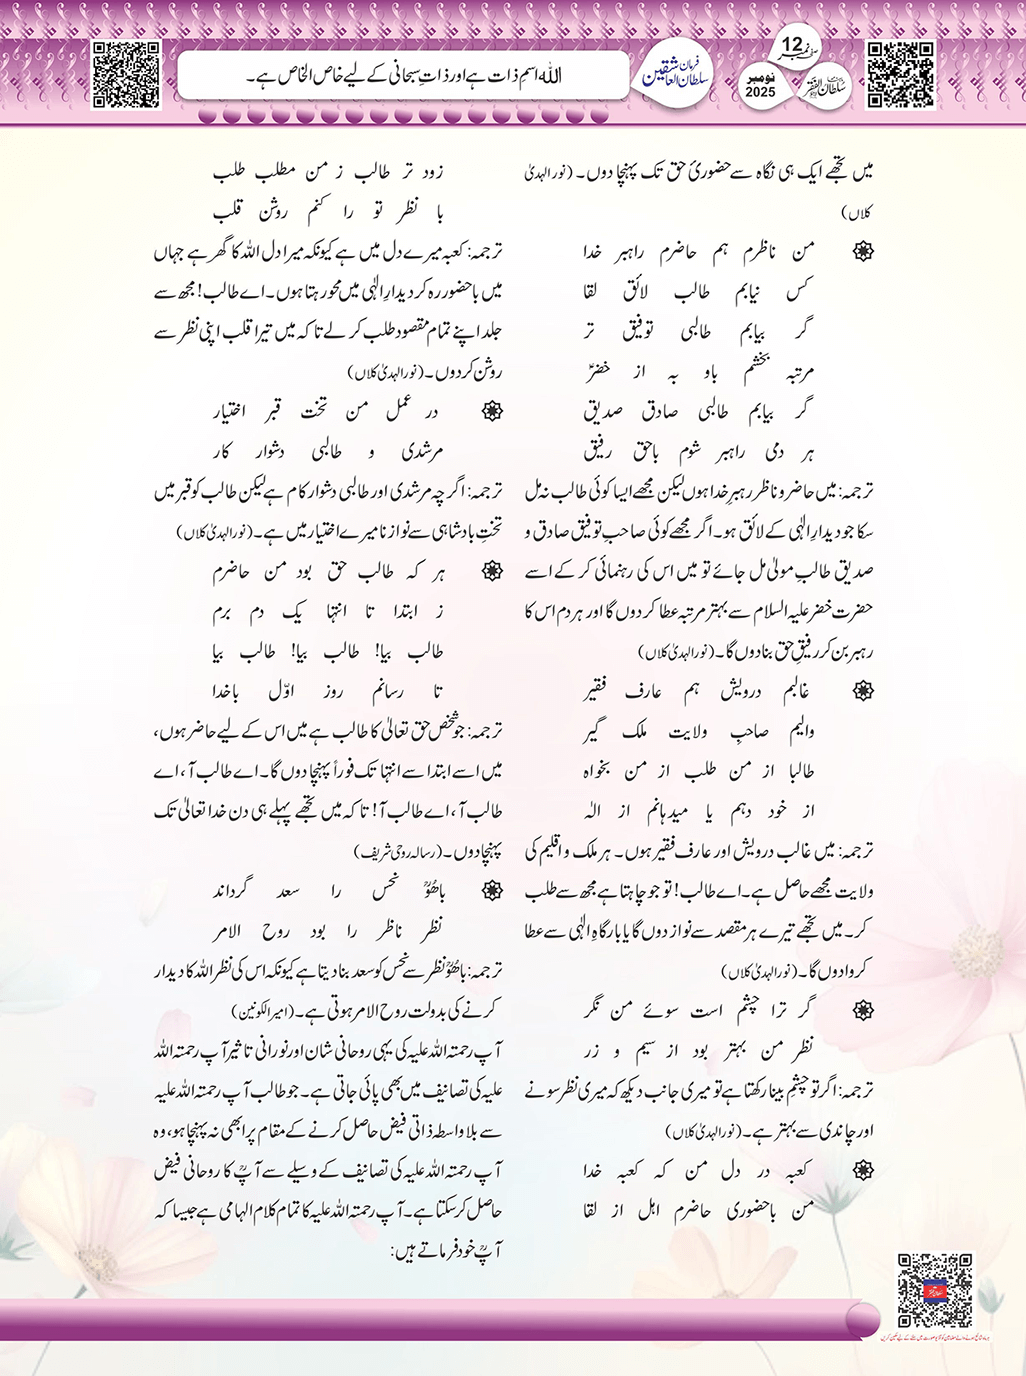 صفحہ نمبر 12
ماہنامہ سلطان الفقر لاہور
نومبر 2025
فرمان سلطان العاشقین
اللہ اسمِ ذات ہے اور ذاتِ سبحانی کے لیے خاص الخاص ہے۔
میں تجھے ایک ہی نگاہ سے حضوریٔ حق تک پہنچا دوں۔ (نور الہدیٰ
کلاں)
من ناظرم ہم حاضرم راہبر خدا
کس نیابم طالب لائق لقا
گر بیابم طالبی توفیق تر
مرتبہ بخشم باو بہ از خضرؑ
گر بیابم طالبی صادق صدیق
ہر دمی راہبر شوم باحق رفیق
ترجمہ: میں حاضر و ناظر رہبرِ خدا ہوں لیکن مجھے ایسا کوئی طالب نہ مل
سکا جو دیدارِ الٰہی کے لائق ہو۔ اگر مجھے کوئی صاحبِ توفیق صادق و
صدیق طالبِ مولیٰ مل جائے تو میں اس کی رہنمائی کر کے اسے
حضرت خضر علیہ السلام سے بہتر مرتبہ عطا کر دوں گا اور ہر دم اس کا
رہبر بن کر رفیقِ حق بنا دوں گا۔ (نور الہدیٰ کلاں)
غالبم درویش ہم عارف فقیر
والیم صاحبِ ولایت ملک گیر
طالبا از من طلب از من بخواہ
از خود دہم یا میدہانم از الٰہ
ترجمہ: میں غالب درویش اور عارف فقیر ہوں۔ ہر ملک و اقلیم کی
ولایت مجھے حاصل ہے۔ اے طالب! تو جو چاہتا ہے مجھ سے طلب
کر۔ میں تجھے تیرے ہر مقصد سے نواز دوں گا یا بارگاہِ الٰہی سے عطا
کروا دوں گا۔ (نور الہدیٰ کلاں)
گر ترا چشم است سوئے من نگر
نظر من بہتر بود از سیم و زر
ترجمہ: اگر تو چشمِ بینا رکھتا ہے تو میری جانب دیکھ کہ میری نظر سونے
اور چاندی سے بہتر ہے۔ (نور الہدیٰ کلاں)
کعبہ در دل من کہ کعبہ خدا
من باحضوری حاضرم اہل از لقا
زود تر طالب ز من مطلب طلب
با نظر تو را کنم روشن قلب
ترجمہ: کعبہ میرے دل میں ہے کیونکہ میرا دل اللہ کا گھر ہے جہاں
میں باحضور رہ کر دیدارِ الٰہی میں محو رہتا ہوں۔ اے طالب! مجھ سے
جلد اپنے تمام مقصود طلب کر لے تاکہ میں تیرا قلب اپنی نظر سے
روشن کر دوں۔ (نور الہدیٰ کلاں)
در عمل من تخت قبر اختیار
مرشدی و طالبی دشوار کار
ترجمہ: اگرچہ مرشدی اور طالبی دشوار کام ہے لیکن طالب کو قبر میں
تختِ بادشاہی سے نوازنا میرے اختیار میں ہے۔ (نور الہدیٰ کلاں)
ہر کہ طالب حق بود من حاضرم
ز ابتدا تا انتہا یک دم برم
طالب بیا! طالب بیا! طالب بیا
تا رسانم روز اوّل باخدا
ترجمہ: جو شخص حق تعالیٰ کا طالب ہے میں اس کے لیے حاضر ہوں،
میں اسے ابتدا سے انتہا تک فوراً پہنچا دوں گا۔ اے طالب آ، اے
طالب آ، اے طالب آ! تاکہ میں تجھے پہلے ہی دن خدا تعالیٰ تک
پہنچا دوں۔ (رسالہ روحی شریف)
باھُوؒ نحس را سعد گرداند
نظر ناظر را بود روح الامر
ترجمہ: باھُوؒ نظر سے نحس کو سعد بنا دیتا ہے کیونکہ اس کی نظر اللہ کا دیدار
کرنے کی بدولت روح الامر ہوتی ہے۔ (امیر الکونین)
آپ رحمتہ اللہ علیہ کی یہی روحانی شان اور نورانی تاثیر آپ رحمتہ اللہ
علیہ کی تصانیف میں بھی پائی جاتی ہے۔ جو طالب آپ رحمتہ اللہ علیہ
سے بلا واسطہ ذاتی فیض حاصل کرنے کے مقام پر ابھی نہ پہنچا ہو، وہ
آپ رحمتہ اللہ علیہ کی تصانیف کے وسیلے سے آپؒ کا روحانی فیض
حاصل کر سکتا ہے۔ آپ رحمتہ اللہ علیہ کا تمام کلام الہامی ہے جیسا کہ
آپؒ خود فرماتے ہیں: